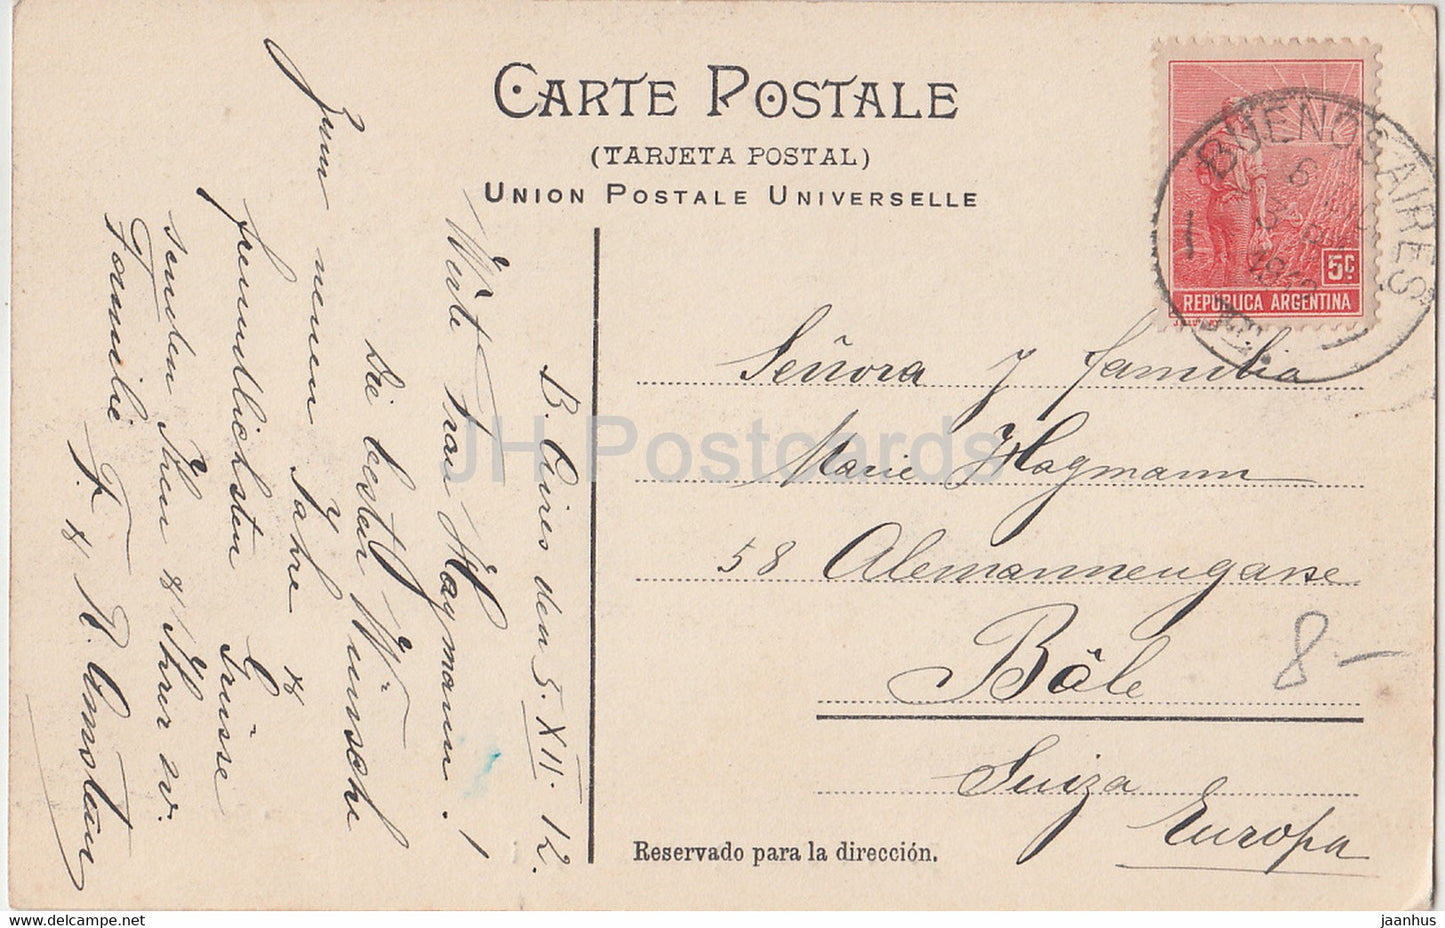 CARTE POSTALE
(TARJETA POSTAL)
UNION POSTALE UNIVERSELLE
B. Aires den 5. XII. 12.
Wert Frau Hagmann!
Die besten Wünsche
zum neuen Jahre &
freundlichsten Grüsse
senden Ihnen & Ihrer w.
Familie F. & R.
Señora y familia
Marie Hagmann
58 Alemannengasse
Bâle
Suiza
Europa
Reservado para la dirección.
8-
BUENOS AIRES
6
1912
5c.
REPÚBLICA ARGENTINA
JH Postcards
www.delcampe.net
jaanhus